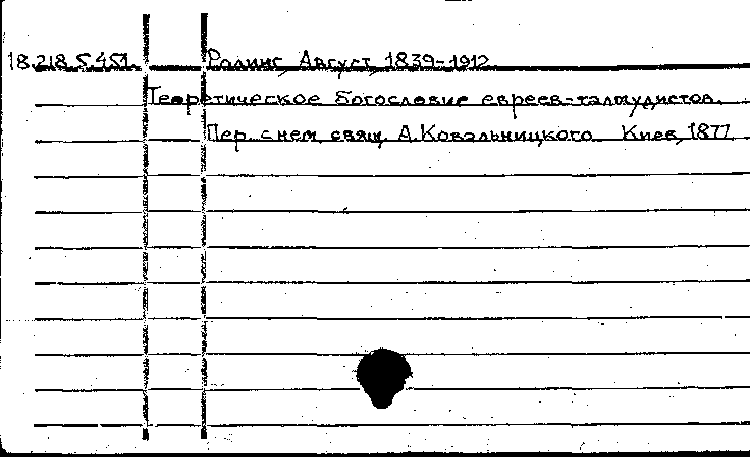 18.218.5.451. Ролинг, Август, 1839-1912.
Теоретическое богословие евреев-талмудистов.
Пер. с нем. свящ. А.Ковальницкого. Киев, 1877